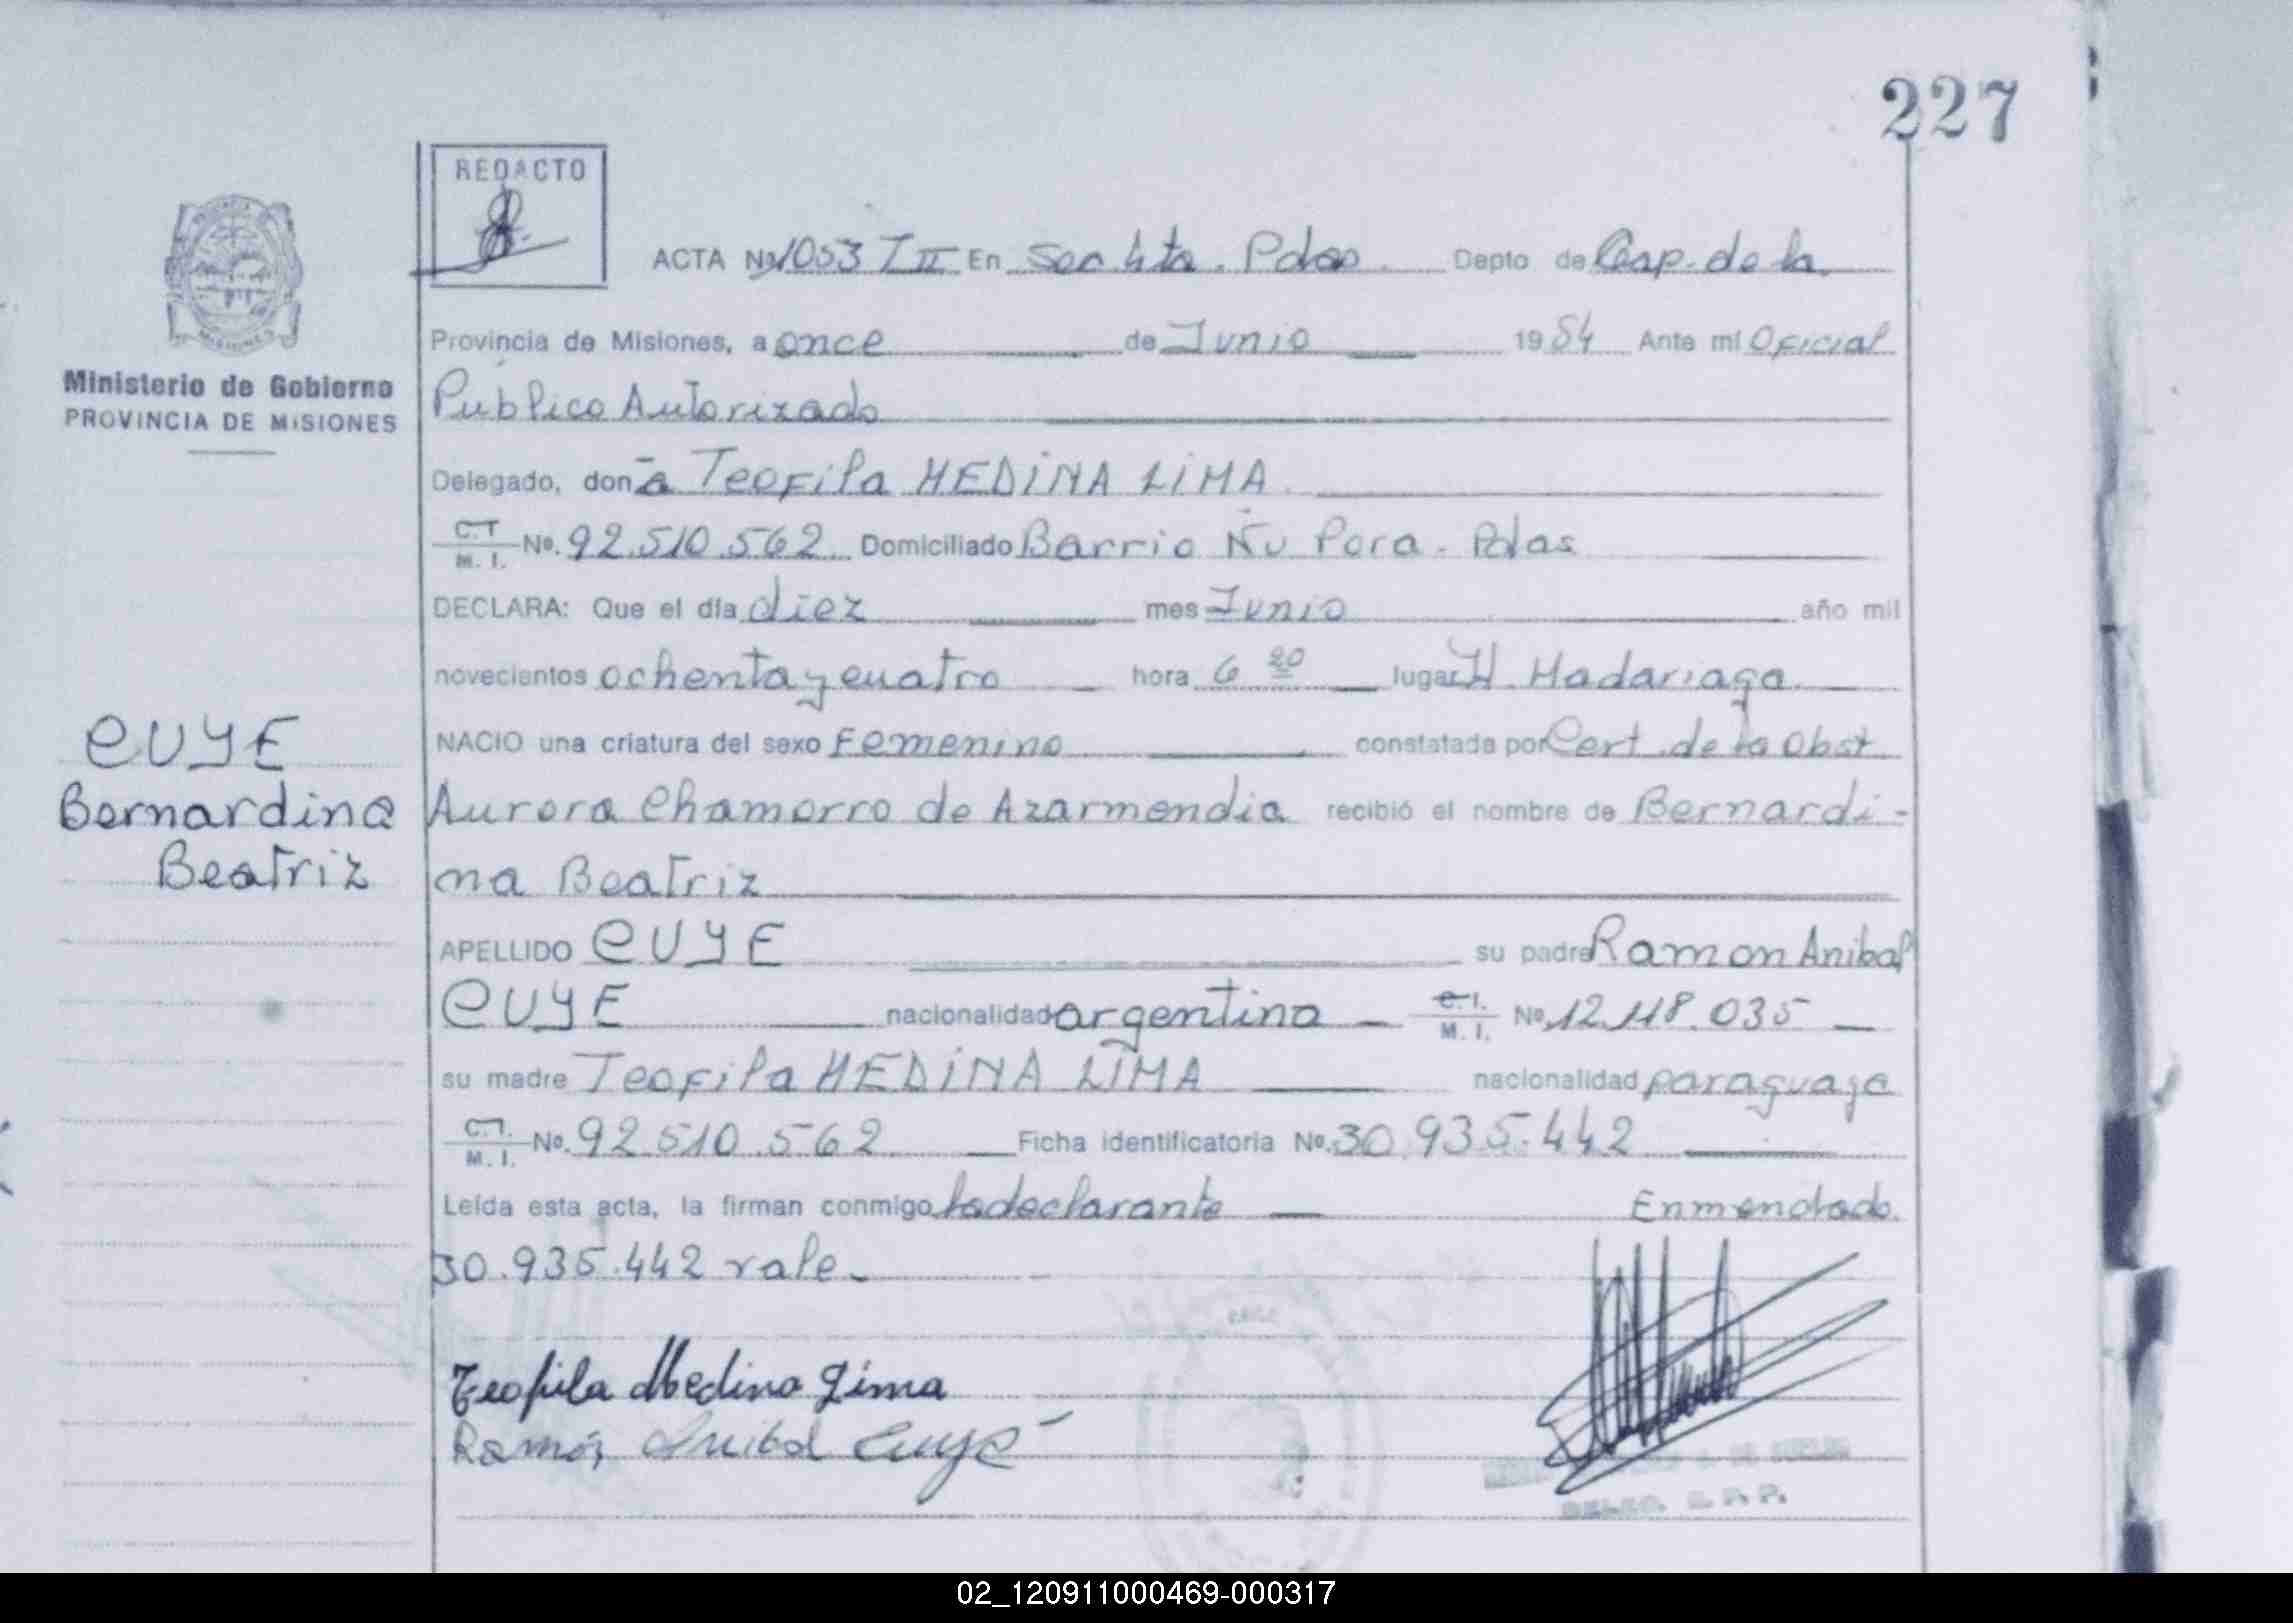 227
REDACTO
ACTA Nº 1053 T II En Sec. 4ta. Pdas. Depto de Cap. de la
Provincia de Misiones, a once de Junio 1984 Ante mi Oficial
Ministerio de Gobierno
PROVINCIA DE MISIONES
Público Autorizado
Delegado, doña Teofila MEDINA LIMA
C.I. M. I. Nº. 92.510.562 Domiciliado Barrio Ñu Pora - Pdas
DECLARA: Que el día diez mes Junio año mil
novecientos ochenta y cuatro hora 6 20 lugar H. Madariaga
NACIO una criatura del sexo Femenino constatada por Cert. de la Obst
Aurora Chamorro de Azarmendia recibió el nombre de Bernardi-
na Beatriz
CUYE
Bernardina
Beatriz
APELLIDO CUYE su padre Ramon Anibal
CUYE nacionalidad argentina C.I. M. I. Nº. 12.118.035
su madre Teofila MEDINA LIMA nacionalidad paraguaya
C.I. M. I. Nº. 92.510.562 Ficha identificatoria Nº. 30.935.442
Leída esta acta, la firman conmigo la declarante Enmendado.
30.935.442 vale.
Teofila Medina Lima
Ramón Anibal Cuye
02_120911000469-000317